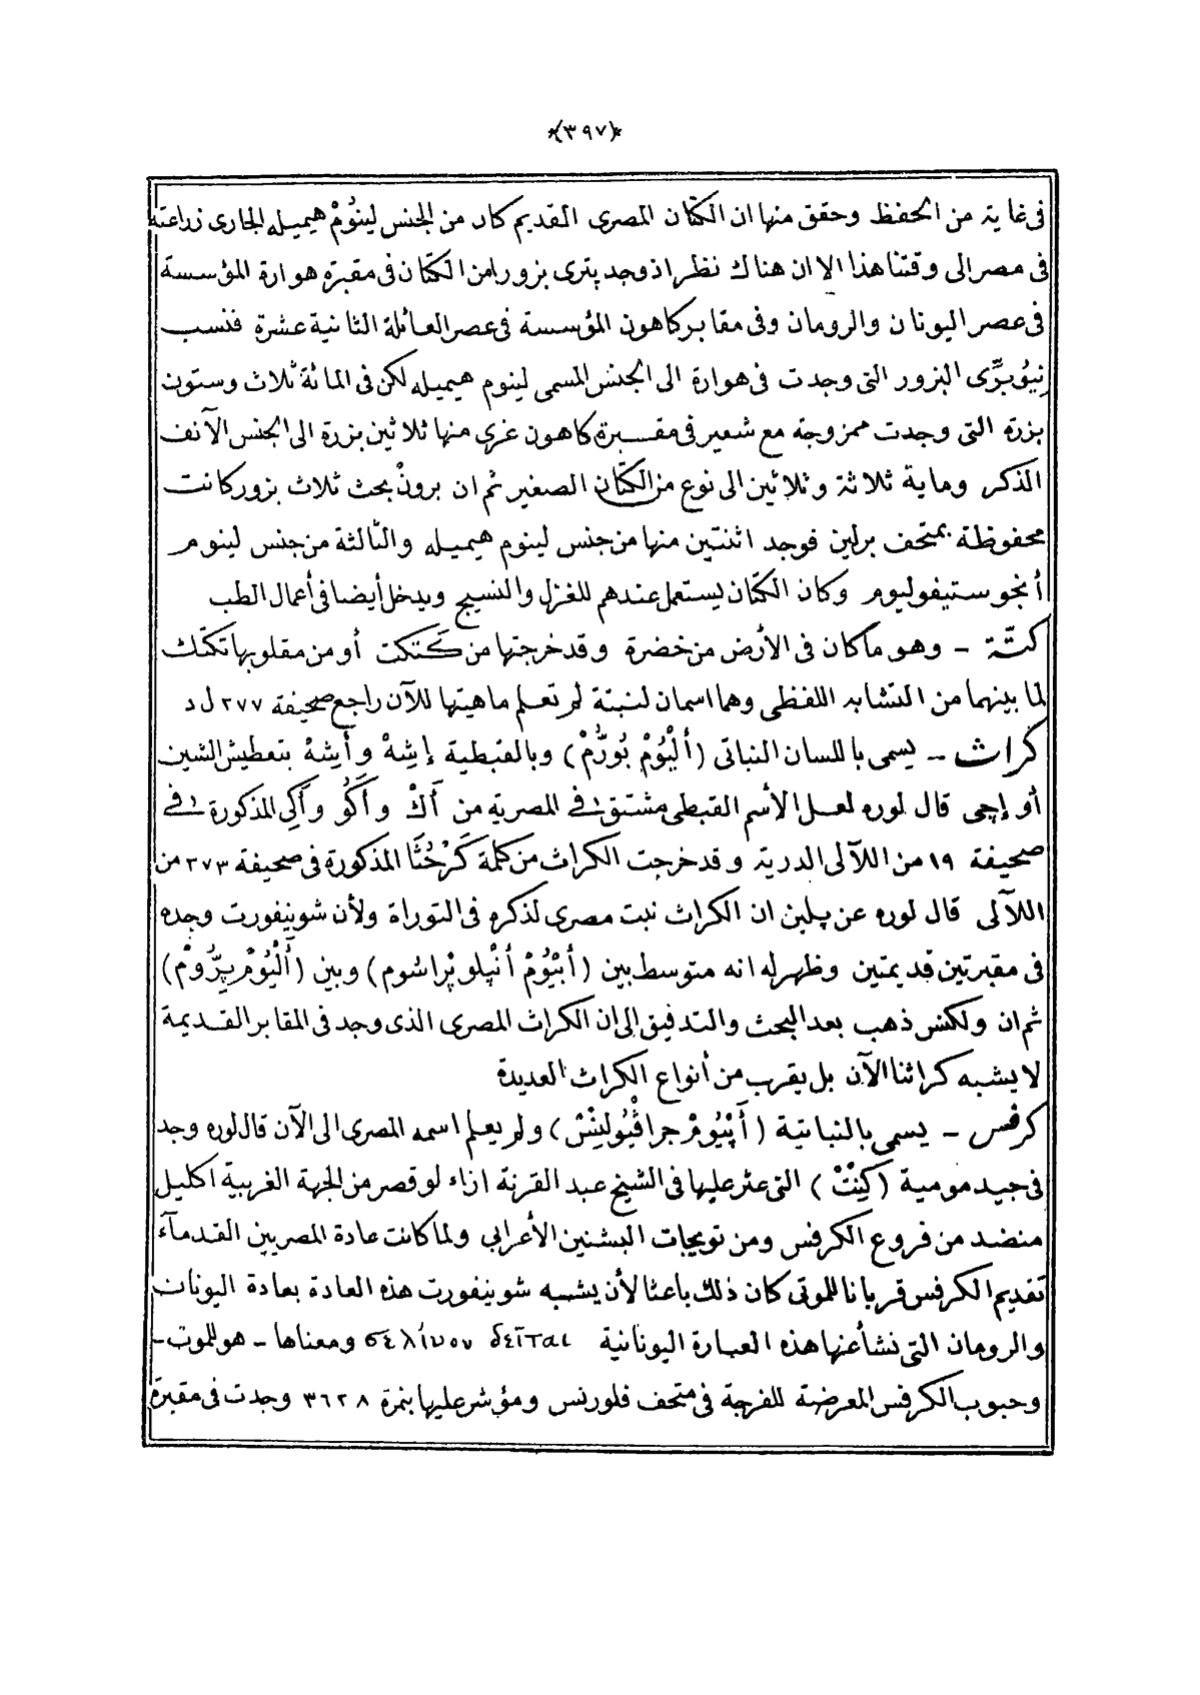 ﴿٣٩٧﴾
فى غاية من الحفظ وحقق منها ان الكتان المصرى القديم كان من الجنس لينُومْ هيميله الجارى زراعته
فى مصر الى وقتنا هذا الا ان هناك نظرا اذ وجد پترى بزورا من الكتان فى مقبرة هوارة المؤسسة
فى عصر اليونان والرومان وفى مقابر كاهون المؤسسة فى عصر العائلة الثانية عشرة فنسب
نِيُوبرِّى البزور التى وجدت فى هوارة الى الجنس المسمى لينوم هيميله لكن فى المائة ثلاث وستون
بزرة التى وجدت ممزوجة مع شعير فى مقبرة كاهون عزى منها ثلاثين بزرة الى الجنس الآنف
الذكر وماية ثلاثة وثلاثين الى نوع من الكتان الصغير ثم ان برونْ بحث ثلاث بزور كانت
محفوظة بمتحف برلين فوجد اثنتين منها من جنس لينوم هيميله والثالثة من جنس لينوم
أنجوستيفوليوم وكان الكتان يستعمل عندهم للغزل والنسيج ويدخل أيضا فى أعمال الطب
كتّة – وهو ما كان فى الأرض من خضرة وقد خرجتها من كَتكت أو من مقلوبها تكتك
لما بينهما من التشابه اللفظى وهما اسمان لنبتة لم تعلم ماهيتها للآن راجع صحيفة ٢٧٧ ل د
كراث – يسمى باللسان النباتى (أَلْيُومْ بُورُّمْ) وبالقبطية إشِهْ وأَشِهْ بتعطيش الشين
أو إچى قال لوره لعل الأسم القبطى مشتق فى المصرية من أَكْ وأَكُو وأَكِى المذكورة فى
صحيفة ١٩ من اللآلى الدرية وقد خرجت الكراث من كلمة كَرْحُتَّا المذكورة فى صحيفة ٢٧٣ من
اللآلى قال لوره عن پلين ان الكراث نبت مصرى لذكره فى التوراة ولأن شونيفورت وجده
فى مقبرتين قديمتين وظهر له انه متوسط بين (أَبْيُومْ أَنْپلوپْراسُوم) وبين (أَلْيُومْ پرُّومْ)
ثم ان ولكنس ذهب بعد البحث والتدقيق الى ان الكراث المصرى الذى وجد فى المقابر القديمة
لا يشبه كراثنا الآن بل يقرب من أنواع الكراث العديدة
كرفس – يسمى بالنباتية (أَپْيُومْ جرافْيُولِينْسْ) ولم يعلم اسمه المصرى الى الآن قال لوره وجد
فى جيد مومية (كِنْتْ) التى عثر عليها فى الشيخ عبد القرنة ازاء لوقصر من الجهة الغربية اكليل
منضد من فروع الكرفس ومن تويجات البشنين الأعرابي ولما كانت عادة المصريين القدمآء
تقديم الكرفس قربانا للموتى كان ذلك باعثا لأن يشبه شونيفورت هذه العادة بعادة اليونان
والرومان التى نشأ عنها هذه العبارة اليونانية σελίνον δεῖται ومعناها – هو للموت –
وحبوب الكرفس المعرضة للفرجة فى متحف فلورنس ومؤشر عليها بنمرة ٣٦٢٨ وجدت فى مقبرة